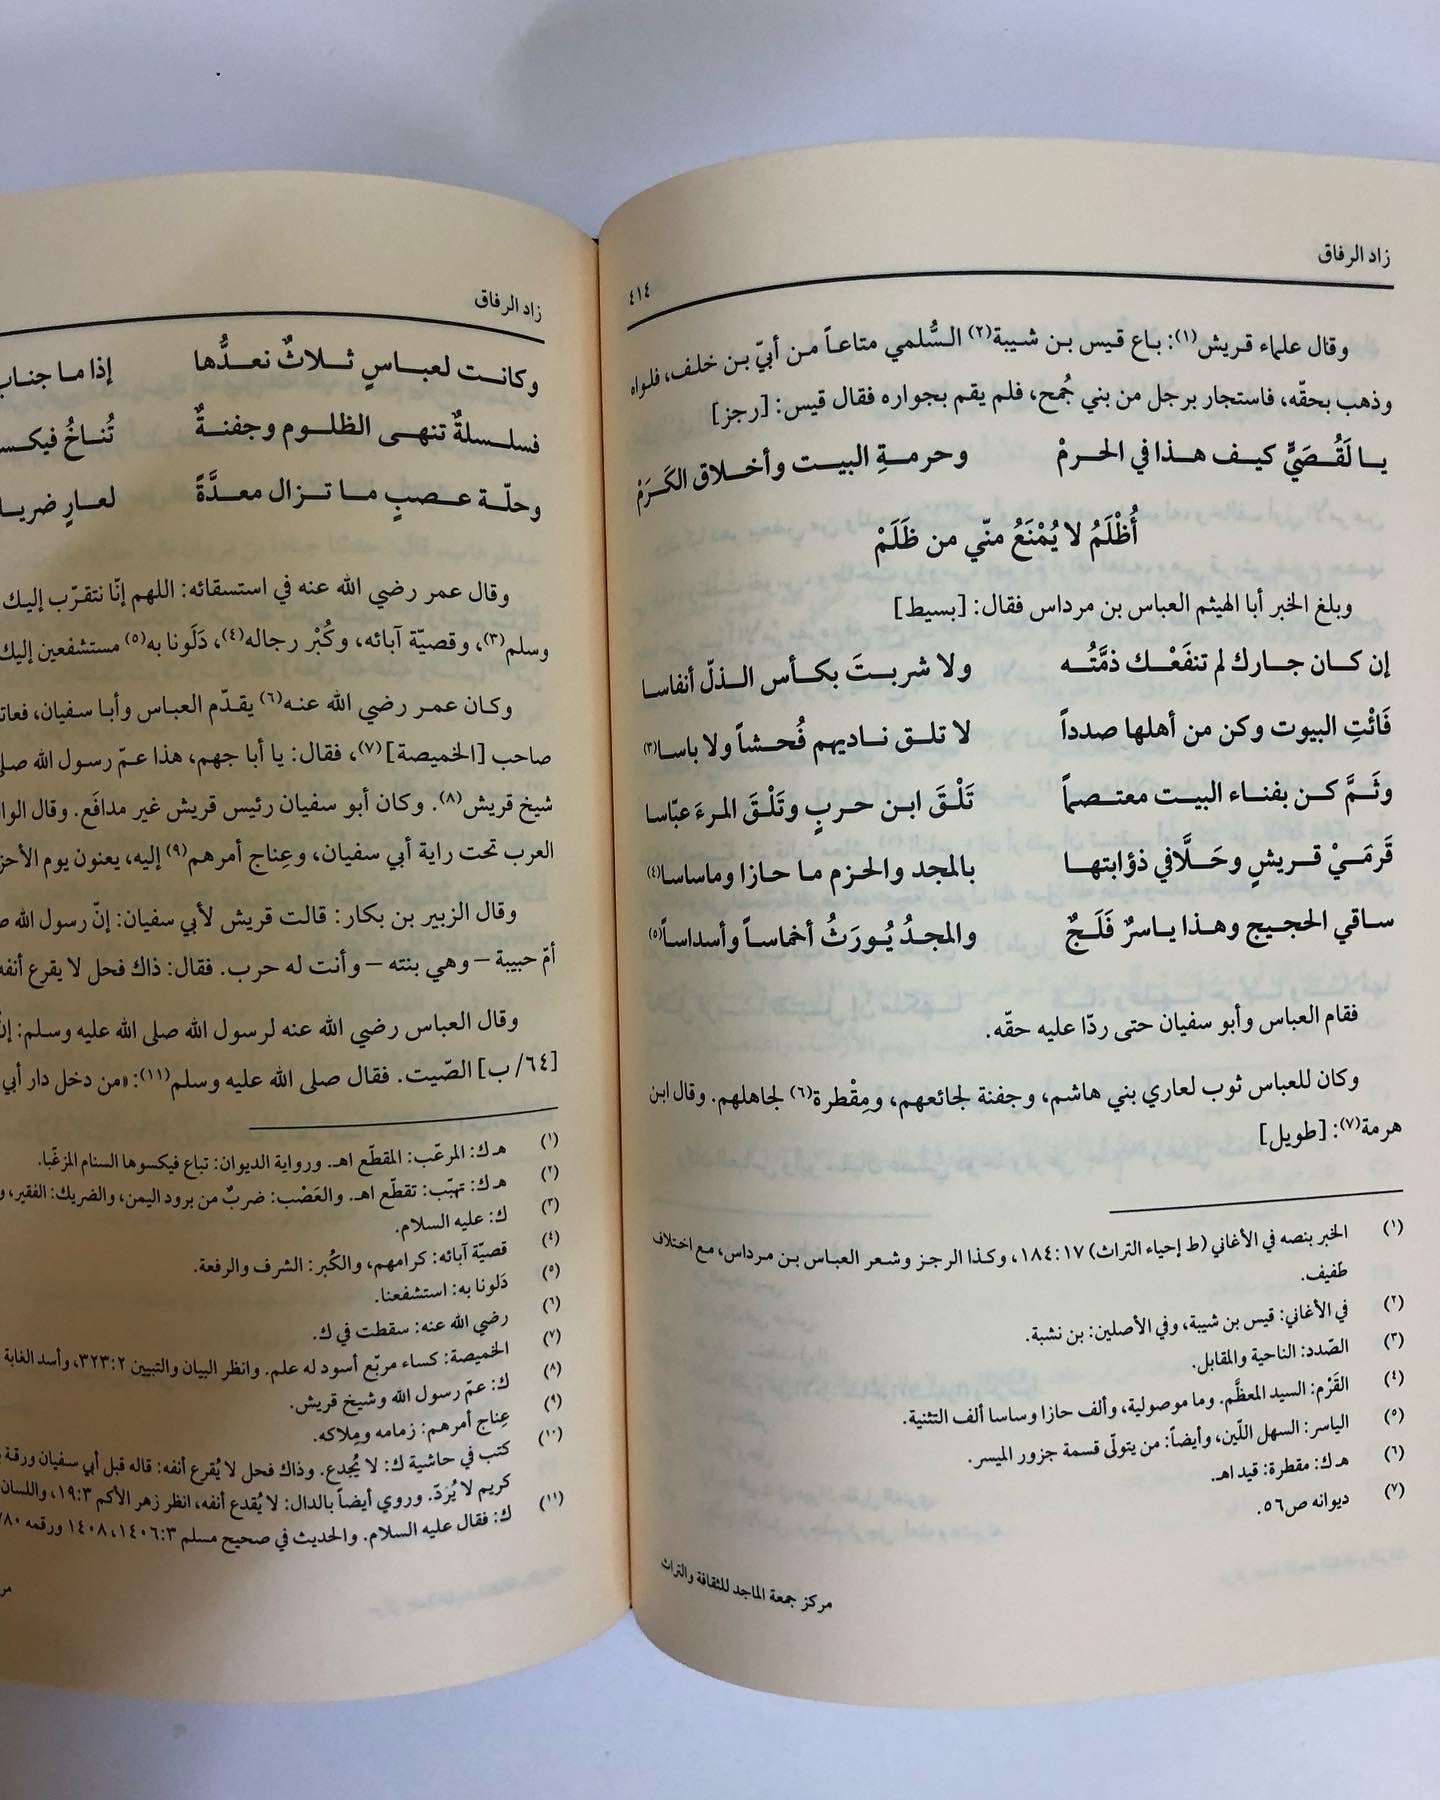 زاد الرفاق
٤١٤
وقال علماء قريش(١): باع قيس بن شيبة(٢) السُّلمي متاعاً من أبيّ بن خلف، فلواه
وذهب بحقّه، فاستجار برجل من بني جُمح، فلم يقم بجواره فقال قيس: [رجز]
يا لَقُصَيٍّ كيف هذا في الحرمْ وحرمةِ البيت وأخلاق الكَرَمْ
أُظْلَمُ لا يُمْنَعُ منّي من ظَلَمْ
وبلغ الخبر أبا الهيثم العباس بن مرداس فقال: [بسيط]
إن كان جارك لم تنفَعْك ذمَّتُه ولا شربتَ بكأس الذلّ أنفاسا
فَائْتِ البيوت وكن من أهلها صدداً لا تلق ناديهم فُحشاً ولا باسا(٣)
وثَمَّ كن بفناء البيت معتصماً تَلْقَ ابن حربٍ وتَلْقَ المرءَ عبّاسا
قَرمَيْ قريشٍ وحَلَّا في ذؤابتها بالمجد والحزم ما حازا وماساسا(٤)
ساقي الحجيج وهذا ياسرٌ فَلَجٌ والمجدُ يُورَثُ أخماساً وأسداساً(٥)
فقام العباس وأبو سفيان حتى ردّا عليه حقّه.
وكان للعباس ثوب لعاري بني هاشم، وجفنة لجائعهم، ومِقْطرة(٦) لجاهلهم. وقال ابن
هرمة(٧): [طويل]
(١) الخبر بنصه في الأغاني (ط إحياء التراث) ١٧:١٨٤، وكذا الرجز وشعر العباس بن مرداس، مع اختلاف
طفيف.
(٢) في الأغاني: قيس بن شيبة، وفي الأصلين: بن نشبة.
(٣) الصّدد: الناحية والمقابل.
(٤) القَرْم: السيد المعظَّم. وما موصولية، وألف حازا وساسا ألف التثنية.
(٥) الياسر: السهل اللّين، وأيضاً: من يتولّى قسمة جزور الميسر.
(٦) هـ ك: مقطرة: قيد اهـ.
(٧) ديوانه ص٥٦.
مركز جمعة الماجد للثقافة والتراث
زاد الرفاق
وكانت لعباسٍ ثلاثٌ نعدُّها إذا ما جناب
فسلسلةٌ تنهى الظلوم وجفنةٌ تُناخُ فيكس
وحلّة عصبٍ ما تزال معدَّةً لعارٍ ضريا
وقال عمر رضي الله عنه في استسقائه: اللهم إنّا نتقرّب إليك
وسلم(٣)، وقصيّة آبائه، وكُبْر رجاله(٤)، دَلَونا به(٥) مستشفعين إليك
وكان عمر رضي الله عنه(٦) يقدّم العباس وأبا سفيان، فعاتـ
صاحب [الخميصة](٧)، فقال: يا أبا جهم، هذا عمّ رسول الله صلى
شيخ قريش(٨). وكان أبو سفيان رئيس قريش غير مدافَع. وقال الوا
العرب تحت راية أبي سفيان، وعِناج أمرهم(٩) إليه، يعنون يوم الأحز
وقال الزبير بن بكار: قالت قريش لأبي سفيان: إنّ رسول الله ص
أمّ حبيبة – وهي بنته – وأنت له حرب. فقال: ذاك فحل لا يقرع أنفه
وقال العباس رضي الله عنه لرسول الله صلى الله عليه وسلم: إن
[٦٤/ ب] الصّيت. فقال صلى الله عليه وسلم(١١): «من دخل دار أبي
(١) هـ ك: المرعّب: المقطّع اهـ. ورواية الديوان: تباع فيكسوها السنام المزعّبا.
(٢) هـ ك: تهبّب: تقطّع اهـ. والعَصْب: ضربٌ من برود اليمن، والضريك: الفقير، و
(٣) ك: عليه السلام.
(٤) قصيّة آبائه: كرامهم، والكُبر: الشرف والرفعة.
(٥) دَلونا به: استشفعنا.
(٦) رضي الله عنه: سقطت في ك.
(٧) الخميصة: كساء مربّع أسود له علم. وانظر البيان والتبيين ٢:٣٢٣، وأسد الغابة
(٨) ك: عمّ رسول الله وشيخ قريش.
(٩) عِناج أمرهم: زمامه ومِلاكه.
(١٠) كتب في حاشية ك: لا يُجدع. وذاك فحل لا يُقرع أنفه: قاله قبل أبي سفيان ورقة
كريم لا يُردّ. وروي أيضاً بالدال: لا يُقدع أنفه، انظر زهر الأكم ٣:١٩، واللسان
(١١) ك: فقال عليه السلام. والحديث في صحيح مسلم ٣:١٤٠٦، ١٤٠٨ ورقمه